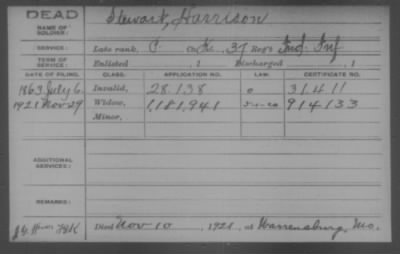 DEAD
NAME OF SOLDIER: Stewart, Harrison
SERVICE: Late rank, P. Co. K, 37 Reg't Ind. Inf.
TERM OF SERVICE: Enlisted , 1 Discharged , 1
DATE OF FILING. CLASS. APPLICATION NO. LAW. CERTIFICATE NO.
1863 July 6. Invalid, 28.138 0 31411
1921 Nov 29 Widow, 1,181,941 914133
Minor,
ADDITIONAL SERVICES:
REMARKS:
Died Nov 10, 1921, at Warrensburg, Mo.